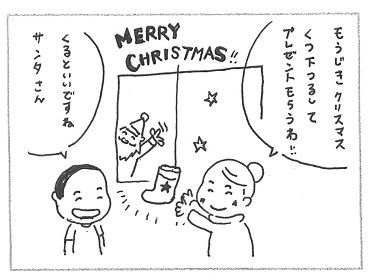 MERRY
CHRISTMAS!!
もうじきクリスマス
くつ下つるして
プレゼントもらうわ!!
くるといいですね
サンタさん